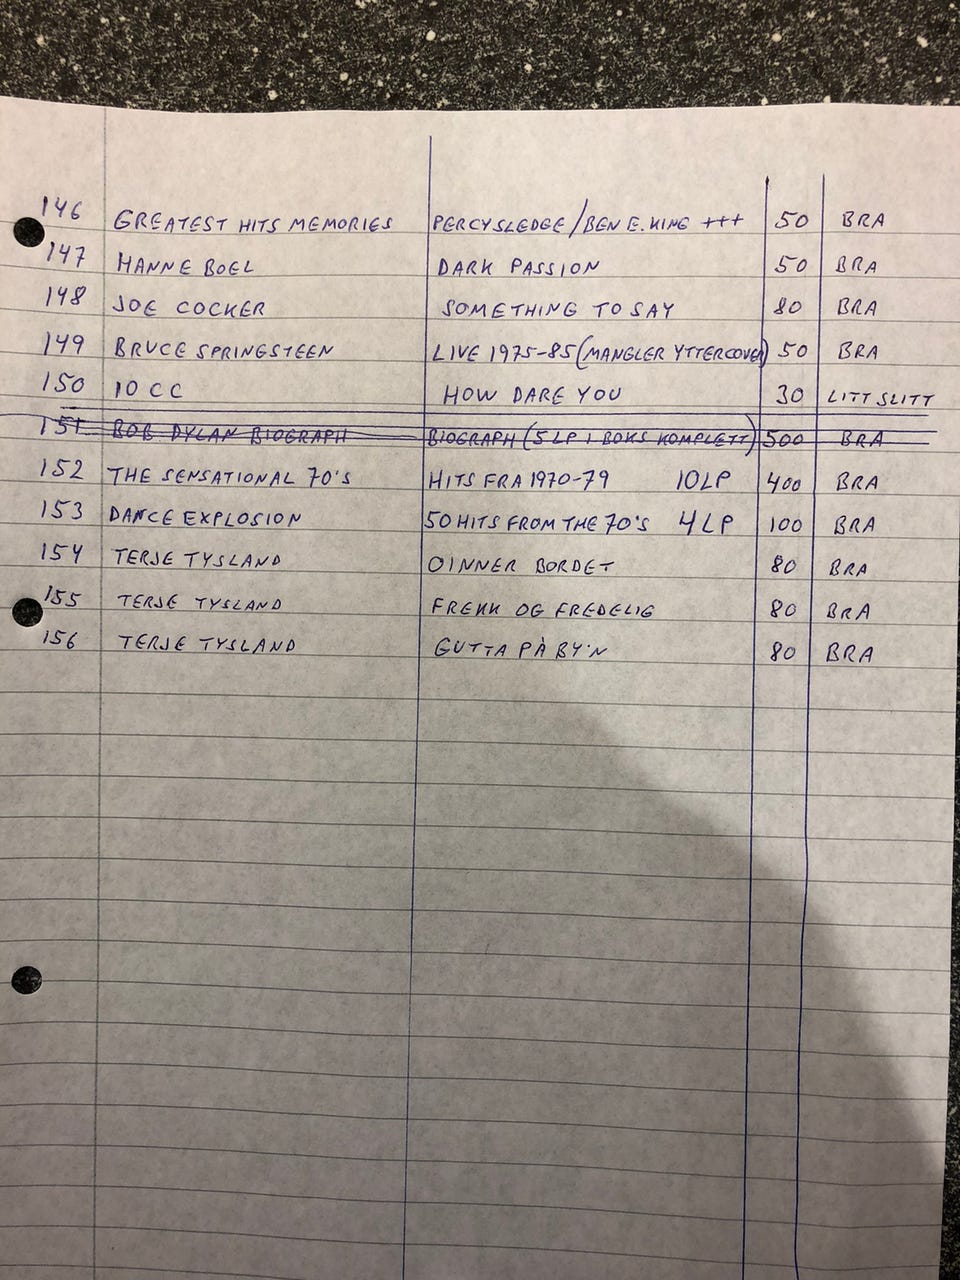 146 GREATEST HITS MEMORIES PERCY SLEDGE/BEN E. KING +++ 50 BRA
147 HANNE BOEL DARK PASSION 50 BRA
148 JOE COCKER SOMETHING TO SAY 80 BRA
149 BRUCE SPRINGSTEEN LIVE 1975-85 (MANGLER YTTERCOVER) 50 BRA
150 10 CC HOW DARE YOU 30 LITT SLITT
151 BOB DYLAN BIOGRAPH BIOGRAPH (5 LP I BOKS KOMPLETT) 500 BRA
152 THE SENSATIONAL 70'S HITS FRA 1970-79 10 LP 400 BRA
153 DANCE EXPLOSION 50 HITS FROM THE 70'S 4 LP 100 BRA
154 TERJE TYSLAND OINNER BORDET 80 BRA
155 TERJE TYSLAND FREKK OG FREDELIG 80 BRA
156 TERJE TYSLAND GUTTA PÅ BY'N 80 BRA